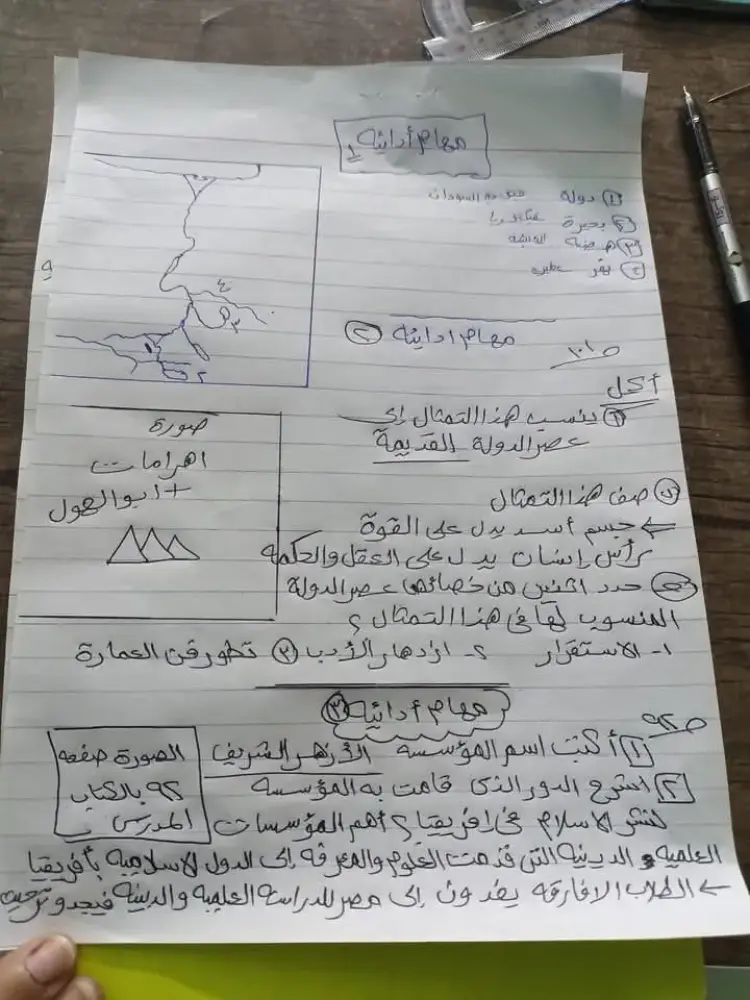 مهام أدائية ١
① دولة جنوب السودان
② بحيرة فكتوريا
③ هضبة الحبشة
④ نهر عطبرة
٤
٣
١
٢
مهام ادائية ②
ص١٠١
أكمل
① ينسب هذا التمثال إلى
عصر الدولة القديمة
صورة
اهرامات
+ ابو الهول
② صف هذا التمثال
← جسم أسد يدل على القوة
برأس إنسان يدل على العقل والحكمة
③ حدد اثنين من خصائص عصر الدولة
المنسوب لها في هذا التمثال ؟
١- الاستقرار ٢- ازدهار الأدب ③ تطور فن العمارة
مهام أدائية ③
ص٩٢
① أكتب اسم المؤسسة الأزهر الشريف
الصورة صفحة
٩٢ بالكتاب
المدرسى
② اشرح الدور الذى قامت به المؤسسة
لنشر الاسلام فى إفريقيا ؟ أهم المؤسسات
العلمية و الدينية التى قدمت العلوم والمعرفة إلى الدول الاسلامية بأفريقيا
← الطلاب الافارقة يفدون إلى مصر للدراسة العلمية والدينية فيجدو